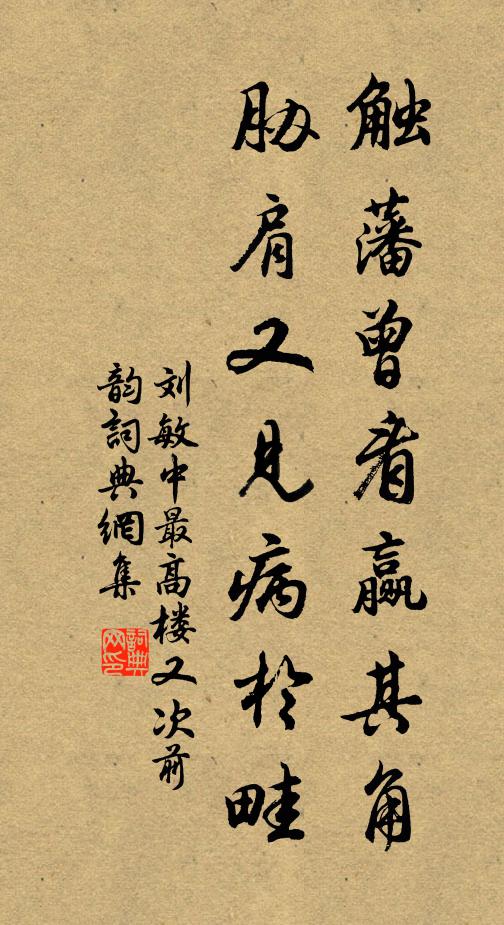 触藩曾看赢其角
胁肩又见病於畦
刘敏中最高楼又次前
韵詞典網集
詞典网印